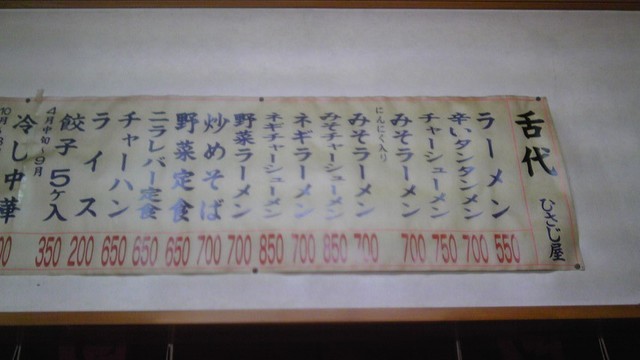 舌代
ひさじ屋
ラーメン 550
辛いタンタンメン 700
チャーシューメン 750
みそラーメン 700
にんにく入り
みそラーメン 700
みそチャーシューメン 850
ネギラーメン 700
ネギチャーシューメン 850
野菜ラーメン 700
炒めそば 700
野菜定食 650
ニラレバー定食 650
チャーハン 650
ライス 200
餃子5ヶ入 350
4月中旬〜9月
冷し中華